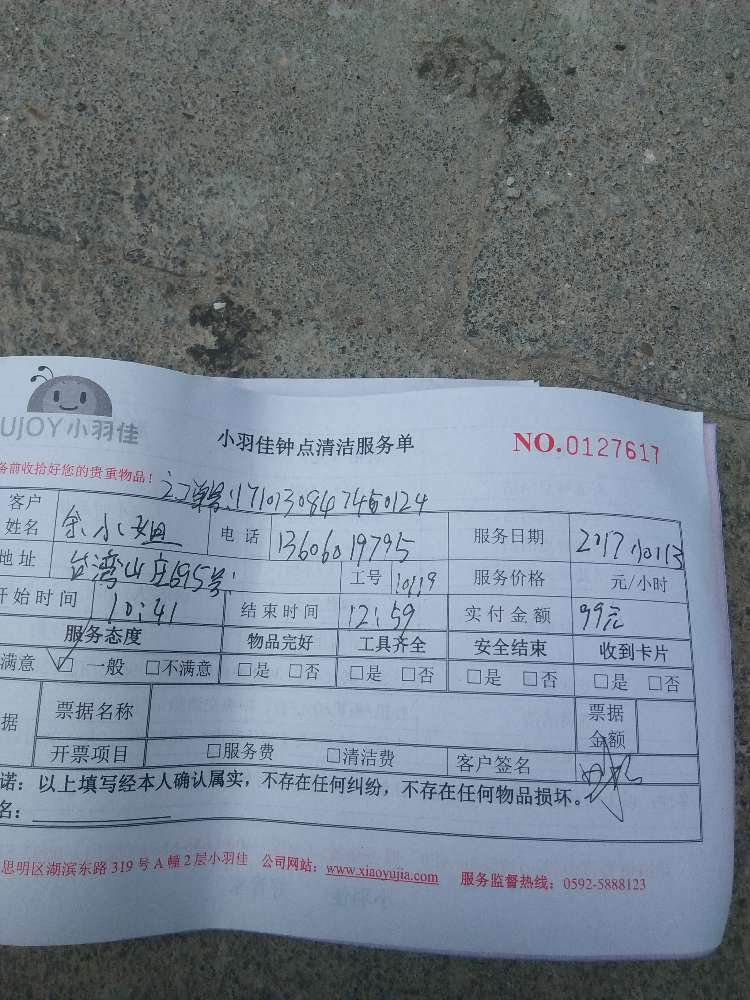 UJOY小羽佳
小羽佳钟点清洁服务单
NO.0127617
务前收拾好您的贵重物品！
订单号:1710130847450124
客户姓名 余小姐 电话 13606019795 服务日期 2017.10.13
地址 台湾山庄695号 工号 10119 服务价格 元/小时
开始时间 10:41 结束时间 12:59 实付金额 99元
服务态度 物品完好 工具齐全 安全结束 收到卡片
满意 ☑ 一般 □不满意 □是 □否 □是 □否 □是 □否 □是 □否
据 票据名称 票据金额
开票项目 □服务费 □清洁费 客户签名
诺：以上填写经本人确认属实，不存在任何纠纷，不存在任何物品损坏。
名：
思明区湖滨东路 319 号 A 幢 2 层小羽佳 公司网站：www.xiaoyujia.com 服务监督热线：0592-5888123